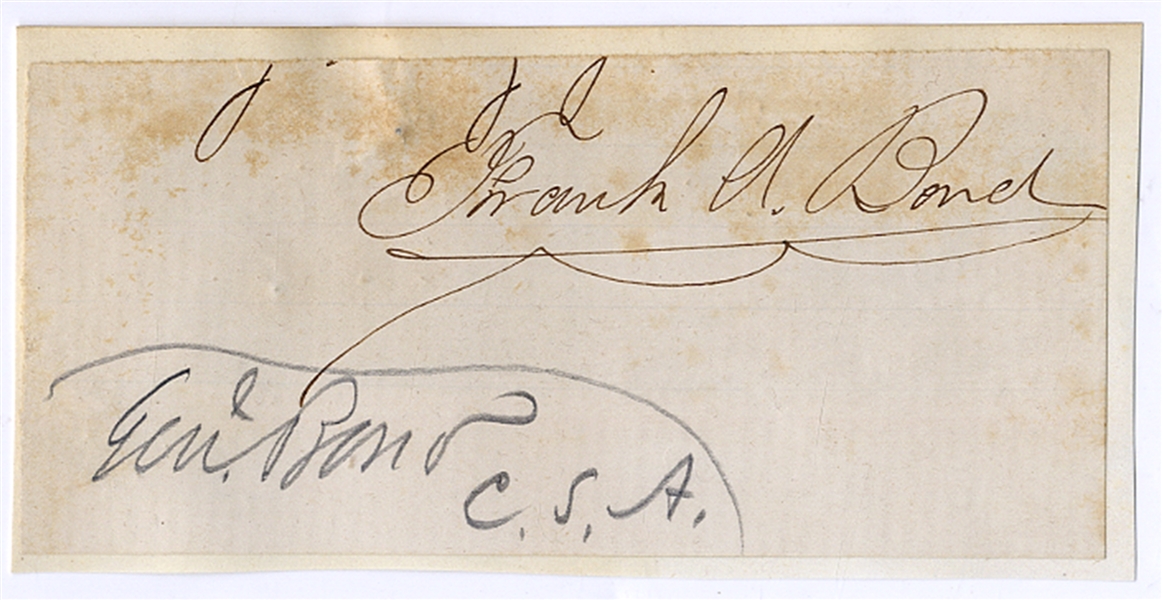 Frank A. Bond
Genl. Bond
C. S. A.